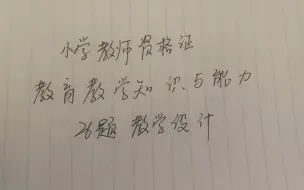 小学教师资格证
教育教学知识与能力
26题 教学设计